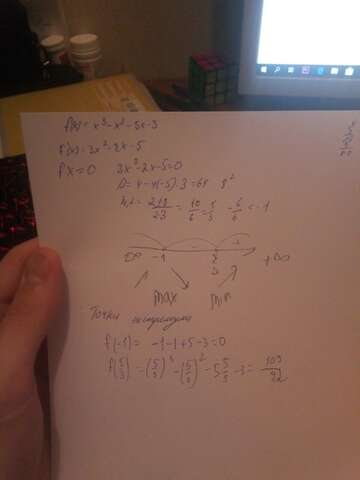 f(x) = x³-x²-5x-3
f'(x) = 3x²-2x-5
f'x=0 3x²-2x-5=0
D = 4-4(-5)·3 = 64 8²
x1,2 = 2±8/2·3 = 10/6 = 5/3 -6/6 = -1
-∞ -1 5/3 +∞
max min
Точки
f(-1) = -1-1+5-3=0
f(5/3) = (5/3)³-(5/3)²-5 5/3-3=